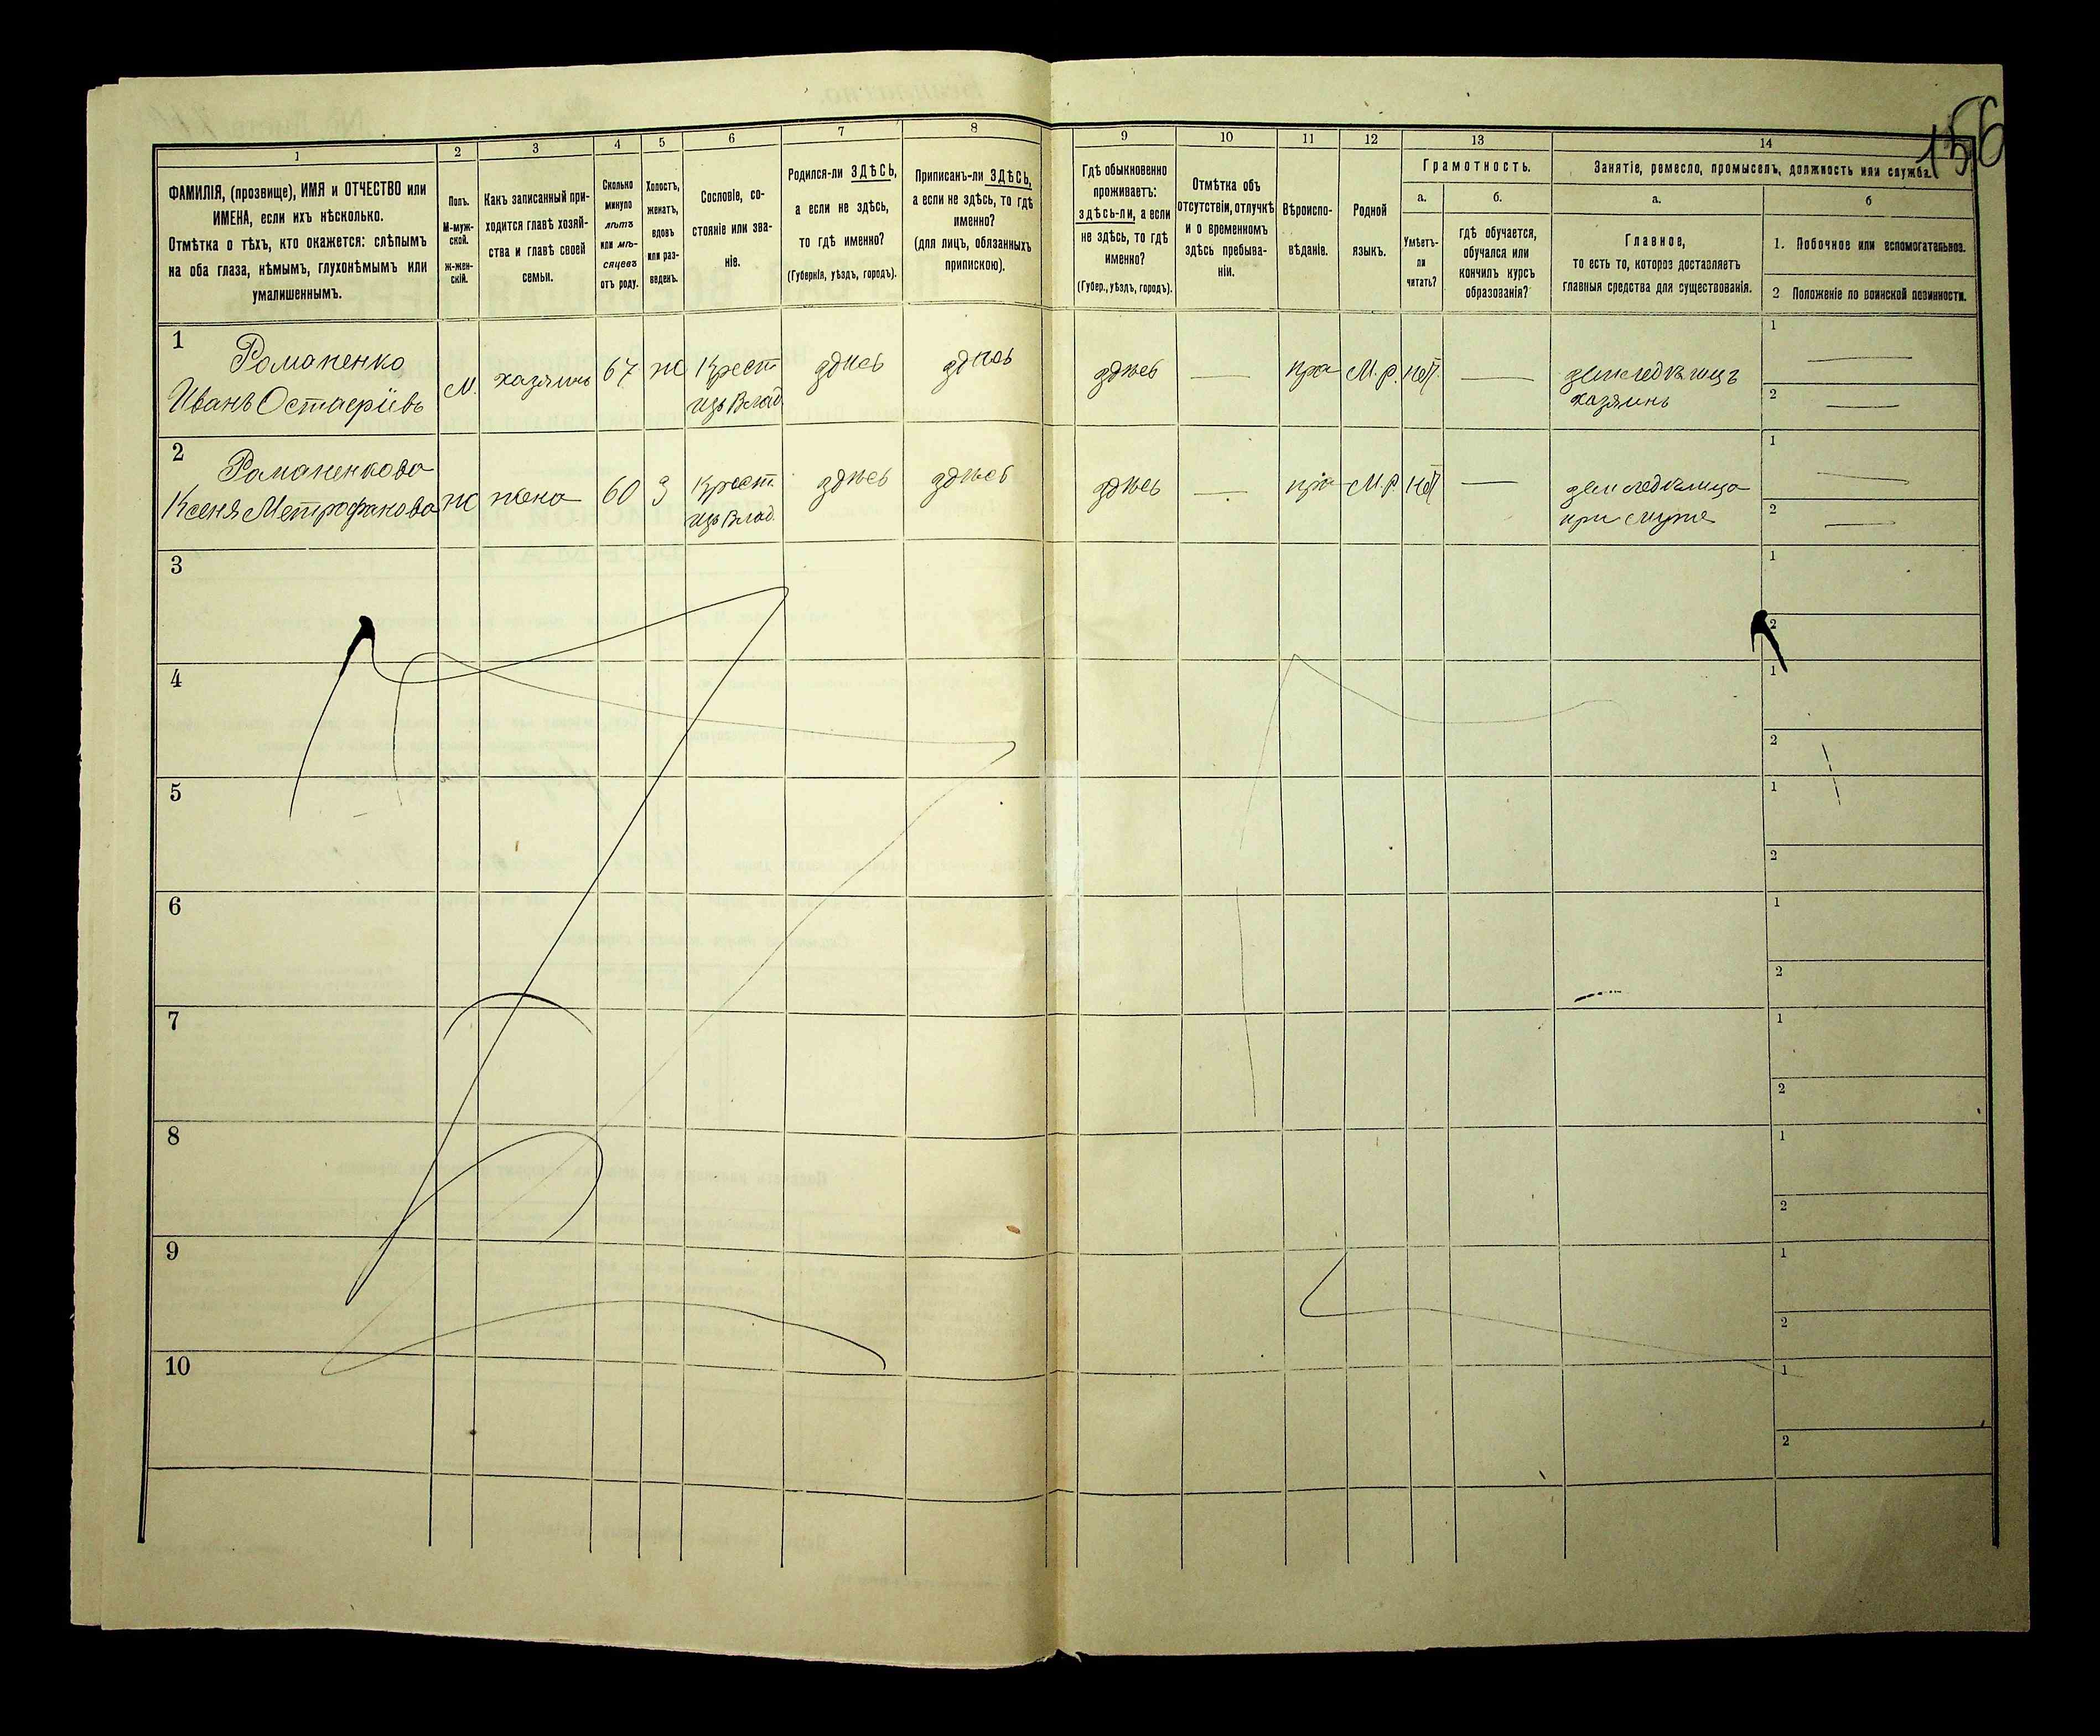 156
1
2
3
4
5
6
7
8
9
10
11
12
13
14
ФАМИЛІЯ, (прозвище), ИМЯ и ОТЧЕСТВО или
ИМЕНА, если ихъ нѣсколько.
Отмѣтка о тѣхъ, кто окажется: слѣпымъ
на оба глаза, нѣмымъ, глухонѣмымъ или
умалишеннымъ.
Полъ.
М-муж-
ской.
Ж-жен-
скій.
Какъ записанный при-
ходится главѣ хозяй-
ства и главѣ своей
семьи.
Сколько
минуло
лѣтъ
или мѣ-
сяцевъ
отъ роду.
Холостъ,
женатъ,
вдовъ
или раз-
веденъ.
Сословіе, со-
стояніе или зва-
ніе.
Родился-ли ЗДѢСЬ,
а если не здѣсь,
то гдѣ именно?
(Губернія, уѣздъ, городъ).
Приписанъ-ли ЗДѢСЬ,
а если не здѣсь, то гдѣ
именно?
(для лицъ, обязанныхъ
припискою).
Гдѣ обыкновенно
проживаетъ:
здѣсь-ли, а если
не здѣсь, то гдѣ
именно?
(Губер., уѣздъ, городъ).
Отмѣтка объ
отсутствіи, отлучкѣ
и о временномъ
здѣсь пребыва-
ніи.
Вѣроиспо-
вѣданіе.
Родной
языкъ.
Грамотность.
а.
Умѣетъ-
ли
читать?
б.
гдѣ обучается,
обучался или
кончилъ курсъ
образованія?
Занятіе, ремесло, промыселъ, должность или служба.
а.
Главное,
то есть то, которое доставляетъ
главныя средства для существованія.
б
1. Побочное или вспомогательное.
2 Положеніе по воинской повинности.
1
Романенко
Иванъ Остаеріивъ
М.
хазяинъ
67
Ж
Крест
изъ Влад
здѣсь
здѣсь
здѣсь
—
пра
М.р.
нет
—
земледѣлецъ
хазяинъ
1
—
2
—
2
Романенкова
Ксеня Метрофанова
Ж
жена
60
З
Крест
изъ Влад.
здѣсь
здѣсь
здѣсь
—
пра
М.р.
нет
—
земледѣлица
при мужѣ
1
—
2
—
3
1
2
4
1
2
5
1
2
6
1
2
7
1
2
8
1
2
9
1
2
10
1
2